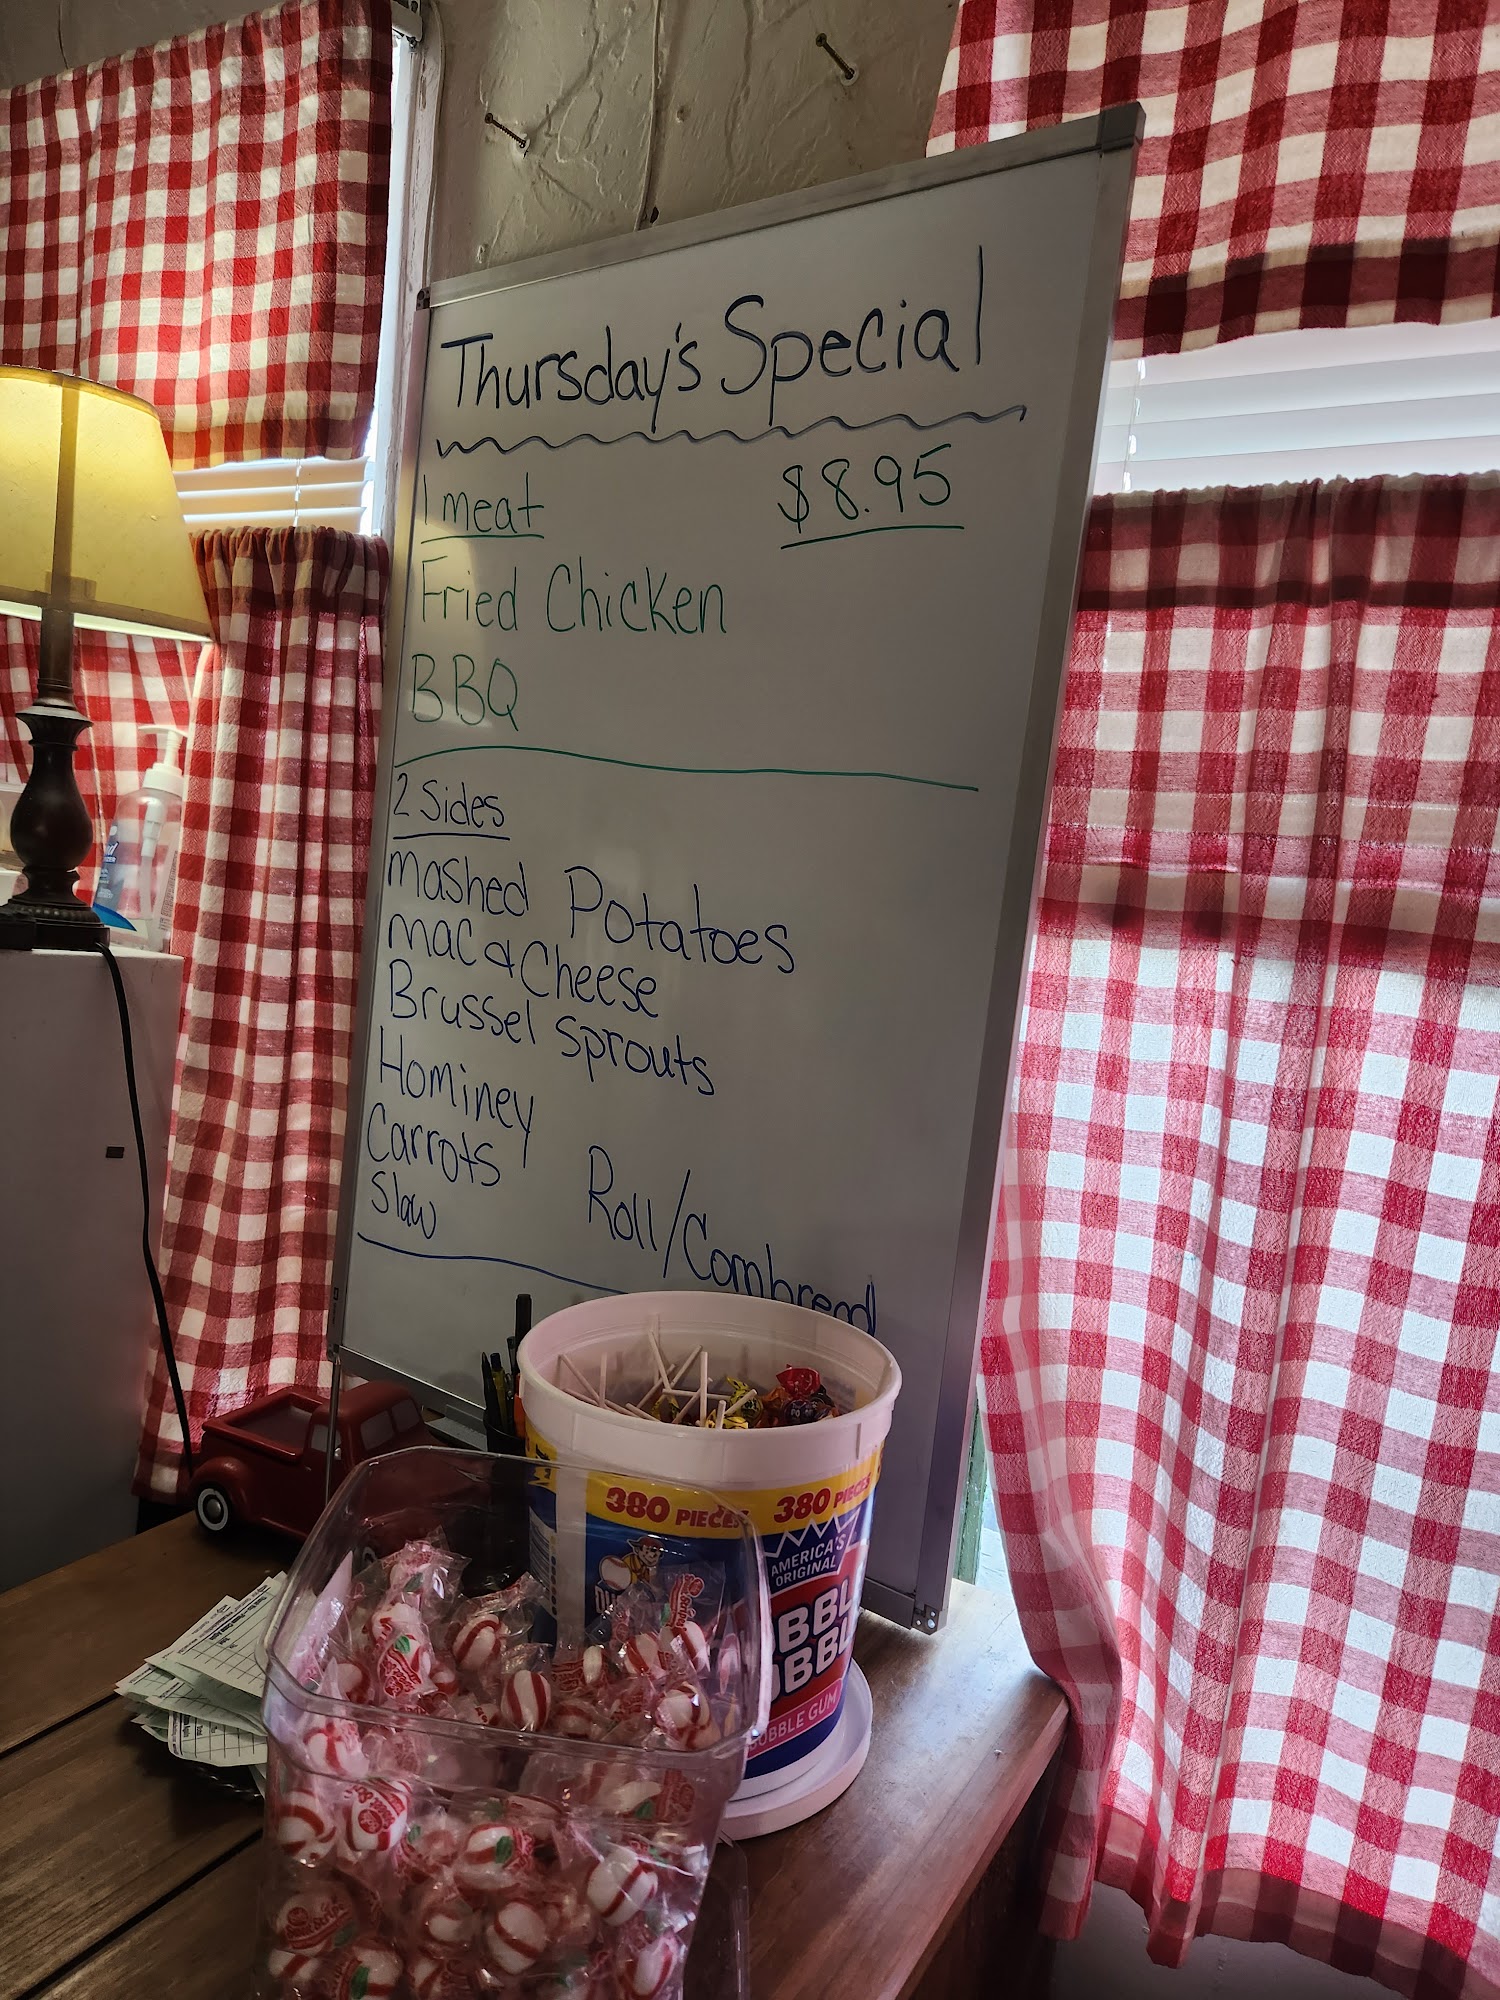 Thursday's Special
1 meat $8.95
Fried Chicken
BBQ
2 Sides
Mashed Potatoes
Mac & Cheese
Brussel sprouts
Hominey
Carrots
Slaw
Roll/Cornbread
380 PIECES 380 PIECES
AMERICA'S
ORIGINAL
BUBBLE GUM